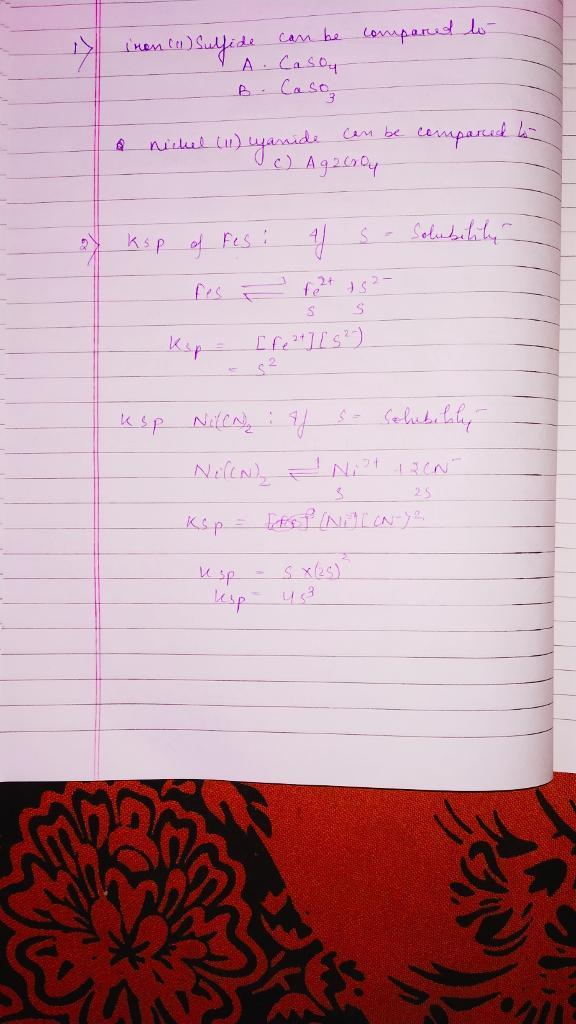 1) iron (11) Sulfide can be compared to -
A. CaSO4
B. CaSO3
nickel (11) cyanide can be compared to -
c) Ag2CrO4
2) Ksp of FeS : If S = Solubility -
FeS ⇌ Fe2+ + S2-
S S
Ksp = [Fe2+][S2-)
= S2
Ksp Ni(CN)2 : If S = Solubility -
Ni(CN)2 ⇌ Ni2+ + 2CN-
S 2S
Ksp = [Ni+][CN-)2
Ksp = S x(2S)2
Ksp = 4S3